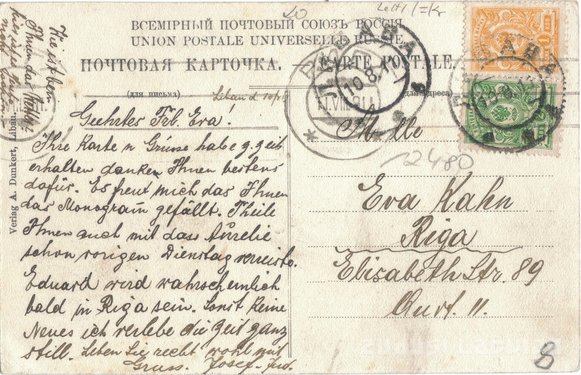 ВСЕМІРНЫЙ ПОЧТОВЫЙ СОЮЗЪ РОССІЯ
UNION POSTALE UNIVERSELLE RUSSIE
ПОЧТОВАЯ КАРТОЧКА. CARTE POSTALE.
(для письма) (для адреса)
Libau d 10/
Geehrter Frl. Eva.
Ihre Karte n Grüsse habe z. Zeit
erhalten danken Ihnen bestens
dafür. Es freut mich das Ihnen
das Monogram gefällt. Theile
Ihnen auch mit das Aurelie
schon vorigen Dienstag verreiste.
Eduard wird wahrscheinlich
bald in Riga sein. Sonst keine
Neues ich verlebe die Zeit ganz
still. Leben Sie recht wohl mit
Gruss. Josef
Wie ist bem
Ihnen das
Verlag A. Dunkert, Libau
10.8.11
12480
Mlle
Eva Kahn
Riga
Elisabeth Str. 89
Qurt. 11.
8